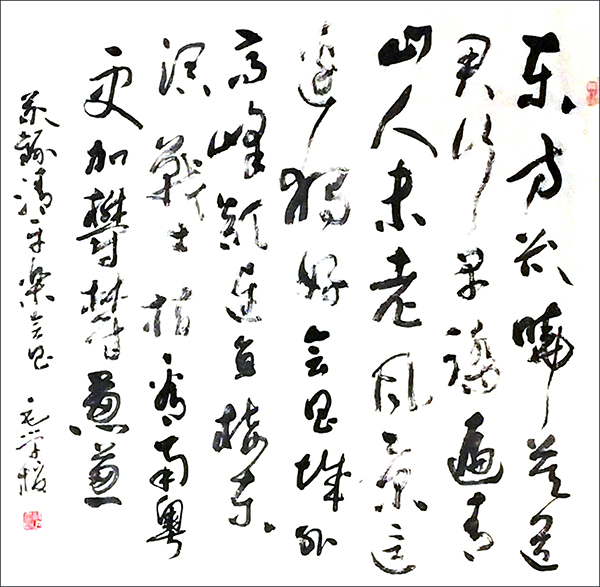 东方欲晓莫道
君行早踏遍青
山人未老风景这
边独好会昌城外
高峰颠连直接东
溟戰士指看南粤
更加鬱鬱葱葱
清平樂会昌 毛学